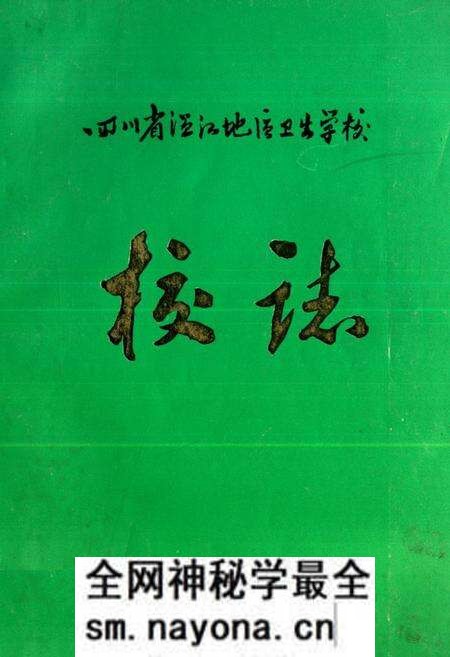 四川省温江地区卫生学校
校誌
全网神秘学最全
sm.nayona.cn